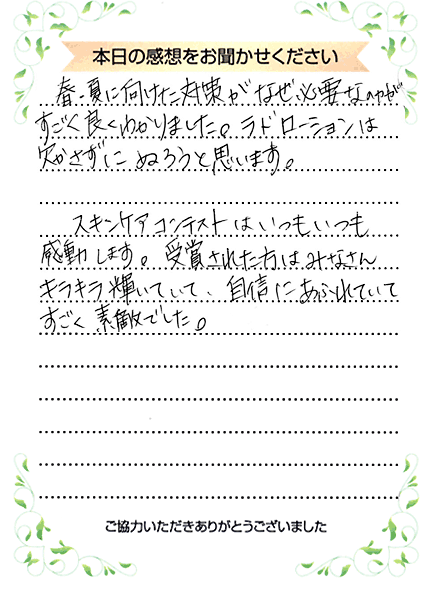 本日の感想をお聞かせください
春・夏に向けた対策がなぜ必要なのかが
すごく良くわかりました。ラドローションは
欠かさずに ぬろうと思います。
スキンケアコンテストはいつもいつも
感動します。受賞された方はみなさん
キラキラ輝いていて、自信にあふれていて
すごく素敵でした。
ご協力いただきありがとうございました